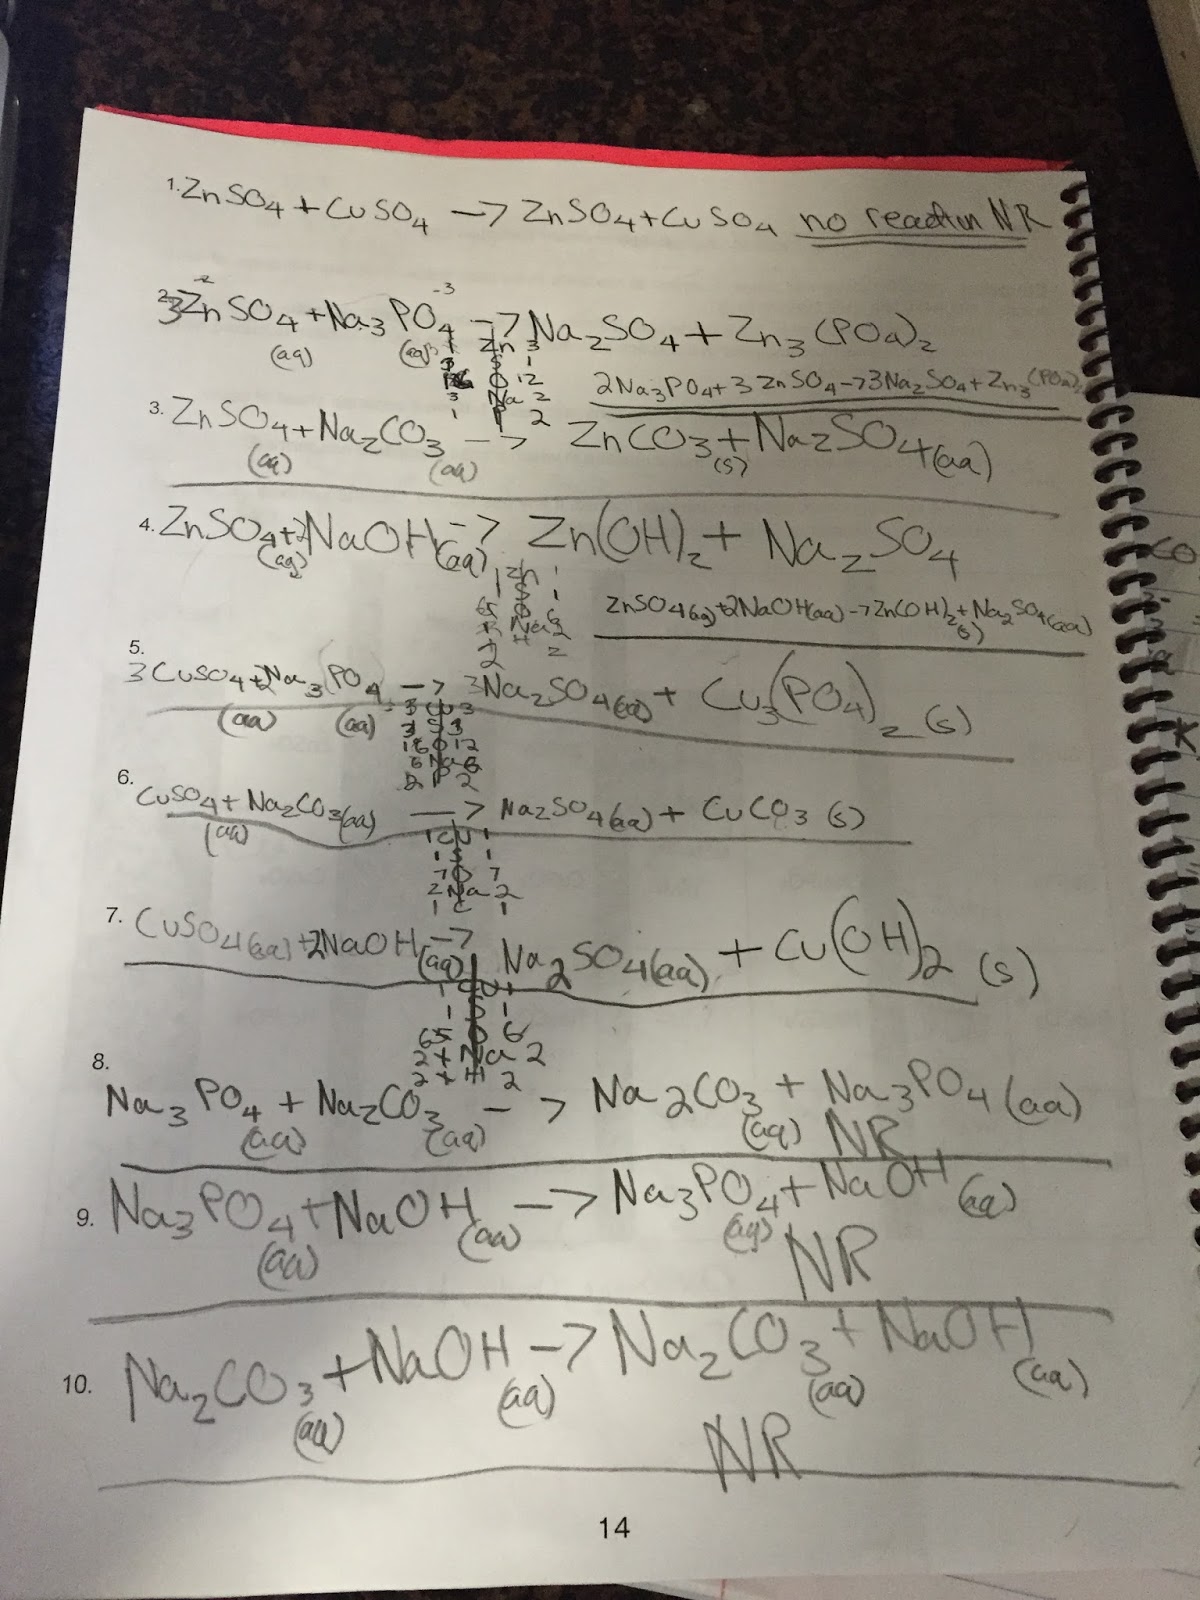 1. ZnSO4 + CuSO4 -> ZnSO4 + CuSO4 no reaction NR
2. 3ZnSO4 + Na3PO4 -> Na2SO4 + Zn3(PO4)2
-2 -3
(aq) (aq)
Zn 3
1
O 12
3 Na 2
1 P 2
2Na3PO4 + 3ZnSO4 -> 3Na2SO4 + Zn3(PO4)2
3. ZnSO4 + Na2CO3 -> ZnCO3 + Na2SO4(aq)
(aq) (aq) (s)
4. ZnSO4 + 2NaOH(aq) -> Zn(OH)2 + Na2SO4
(aq)
1 Zn 1
1 S 1
O 6
Na 2
2 H 2
ZnSO4(aq) + 2NaOH(aq) -> Zn(OH)2 + Na2SO4(aq)
(s)
5. 3CuSO4 + 2Na3(PO4) -> 3Na2SO4(aq) + Cu3(PO4)2(s)
(aq) (aq)
3 Cu 3
3 S 3
O 12
6 Na 6
2 P 2
6. CuSO4 + Na2CO3(aq) -> Na2SO4(aq) + CuCO3(s)
(aq)
1 Cu 1
1 S 1
7 O 7
2 Na 2
1 C 1
7. CuSO4(aq) + 2NaOH(aq) -> Na2SO4(aq) + Cu(OH)2 (s)
1 Cu 1
1 S 1
6 5 O 6
2 1 Na 2
2 1 H 2
8. Na3PO4 + Na2CO3 -> Na2CO3 + Na3PO4(aq)
(aq) (aq) (aq) NR
9. Na3PO4 + NaOH -> Na3PO4 + NaOH(aq)
(aq) (aq) (aq) NR
10. Na2CO3 + NaOH -> Na2CO3 + NaOH
(aq) (aq) (aq) (aq)
NR
14